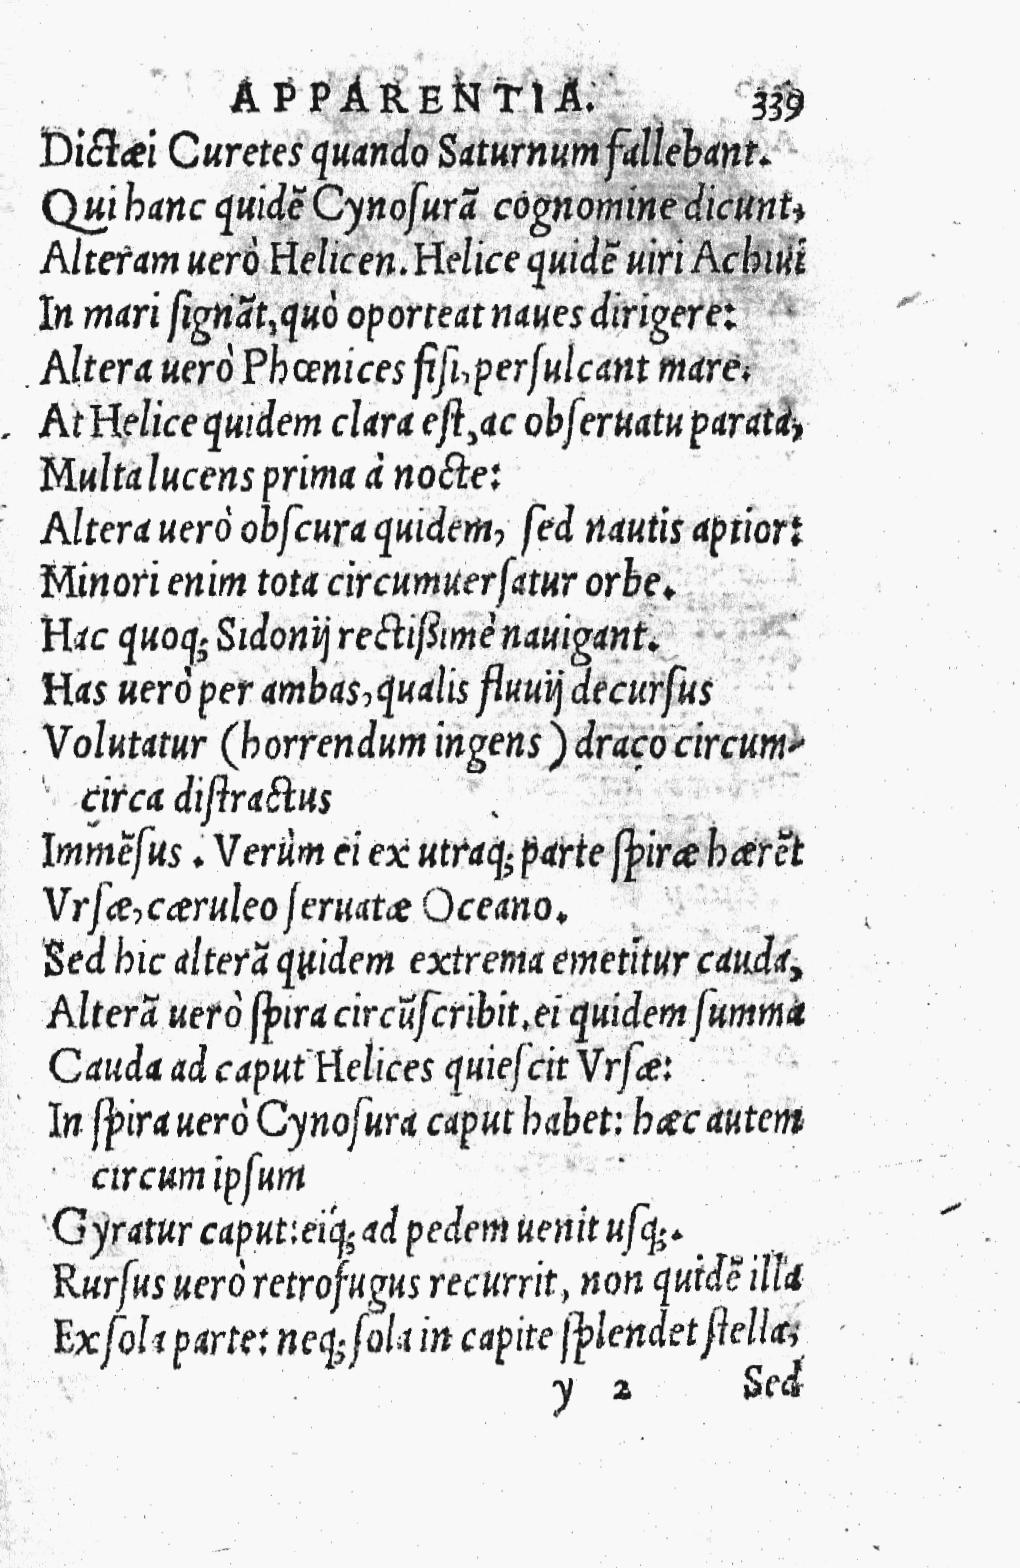 APPARENTIA. 339
Dictæi Curetes quando Saturnum fallebant.
Qui hanc quidẽ Cynoſurã cognomine dicunt,
Alteram uerò Helicen. Helice quidẽ uiri Achiui
In mari ſignãt, quò oporteat naues dirigere:
Altera uerò Phœnices fiſi, perſulcant mare.
At Helice quidem clara eſt, ac obſeruatu parata,
Multa lucens prima à nocte:
Altera uerò obſcura quidem, ſed nautis aptior:
Minori enim tota circumuerſatur orbe.
Hac quoq; Sidonij rectißimè nauigant.
Has uerò per ambas, qualis fluuij decurſus
Volutatur (horrendum ingens) draco circum-
circa diſtractus
Immẽſus. Verùm ei ex utraq; parte ſpiræ hærẽt
Vrſæ, cæruleo ſeruatæ Oceano.
Sed hic alterã quidem extrema emetitur cauda,
Alterã uerò ſpira circũſcribit. ei quidem ſumma
Cauda ad caput Helices quieſcit Vrſæ:
In ſpira uerò Cynoſura caput habet: hæc autem
circum ipſum
Gyratur caput: eiq́; ad pedem uenit uſq;.
Rurſus uerò retrofugus recurrit, non quidẽ illa
Ex ſola parte: neq; ſola in capite ſplendet ſtella,
y 2 Sed